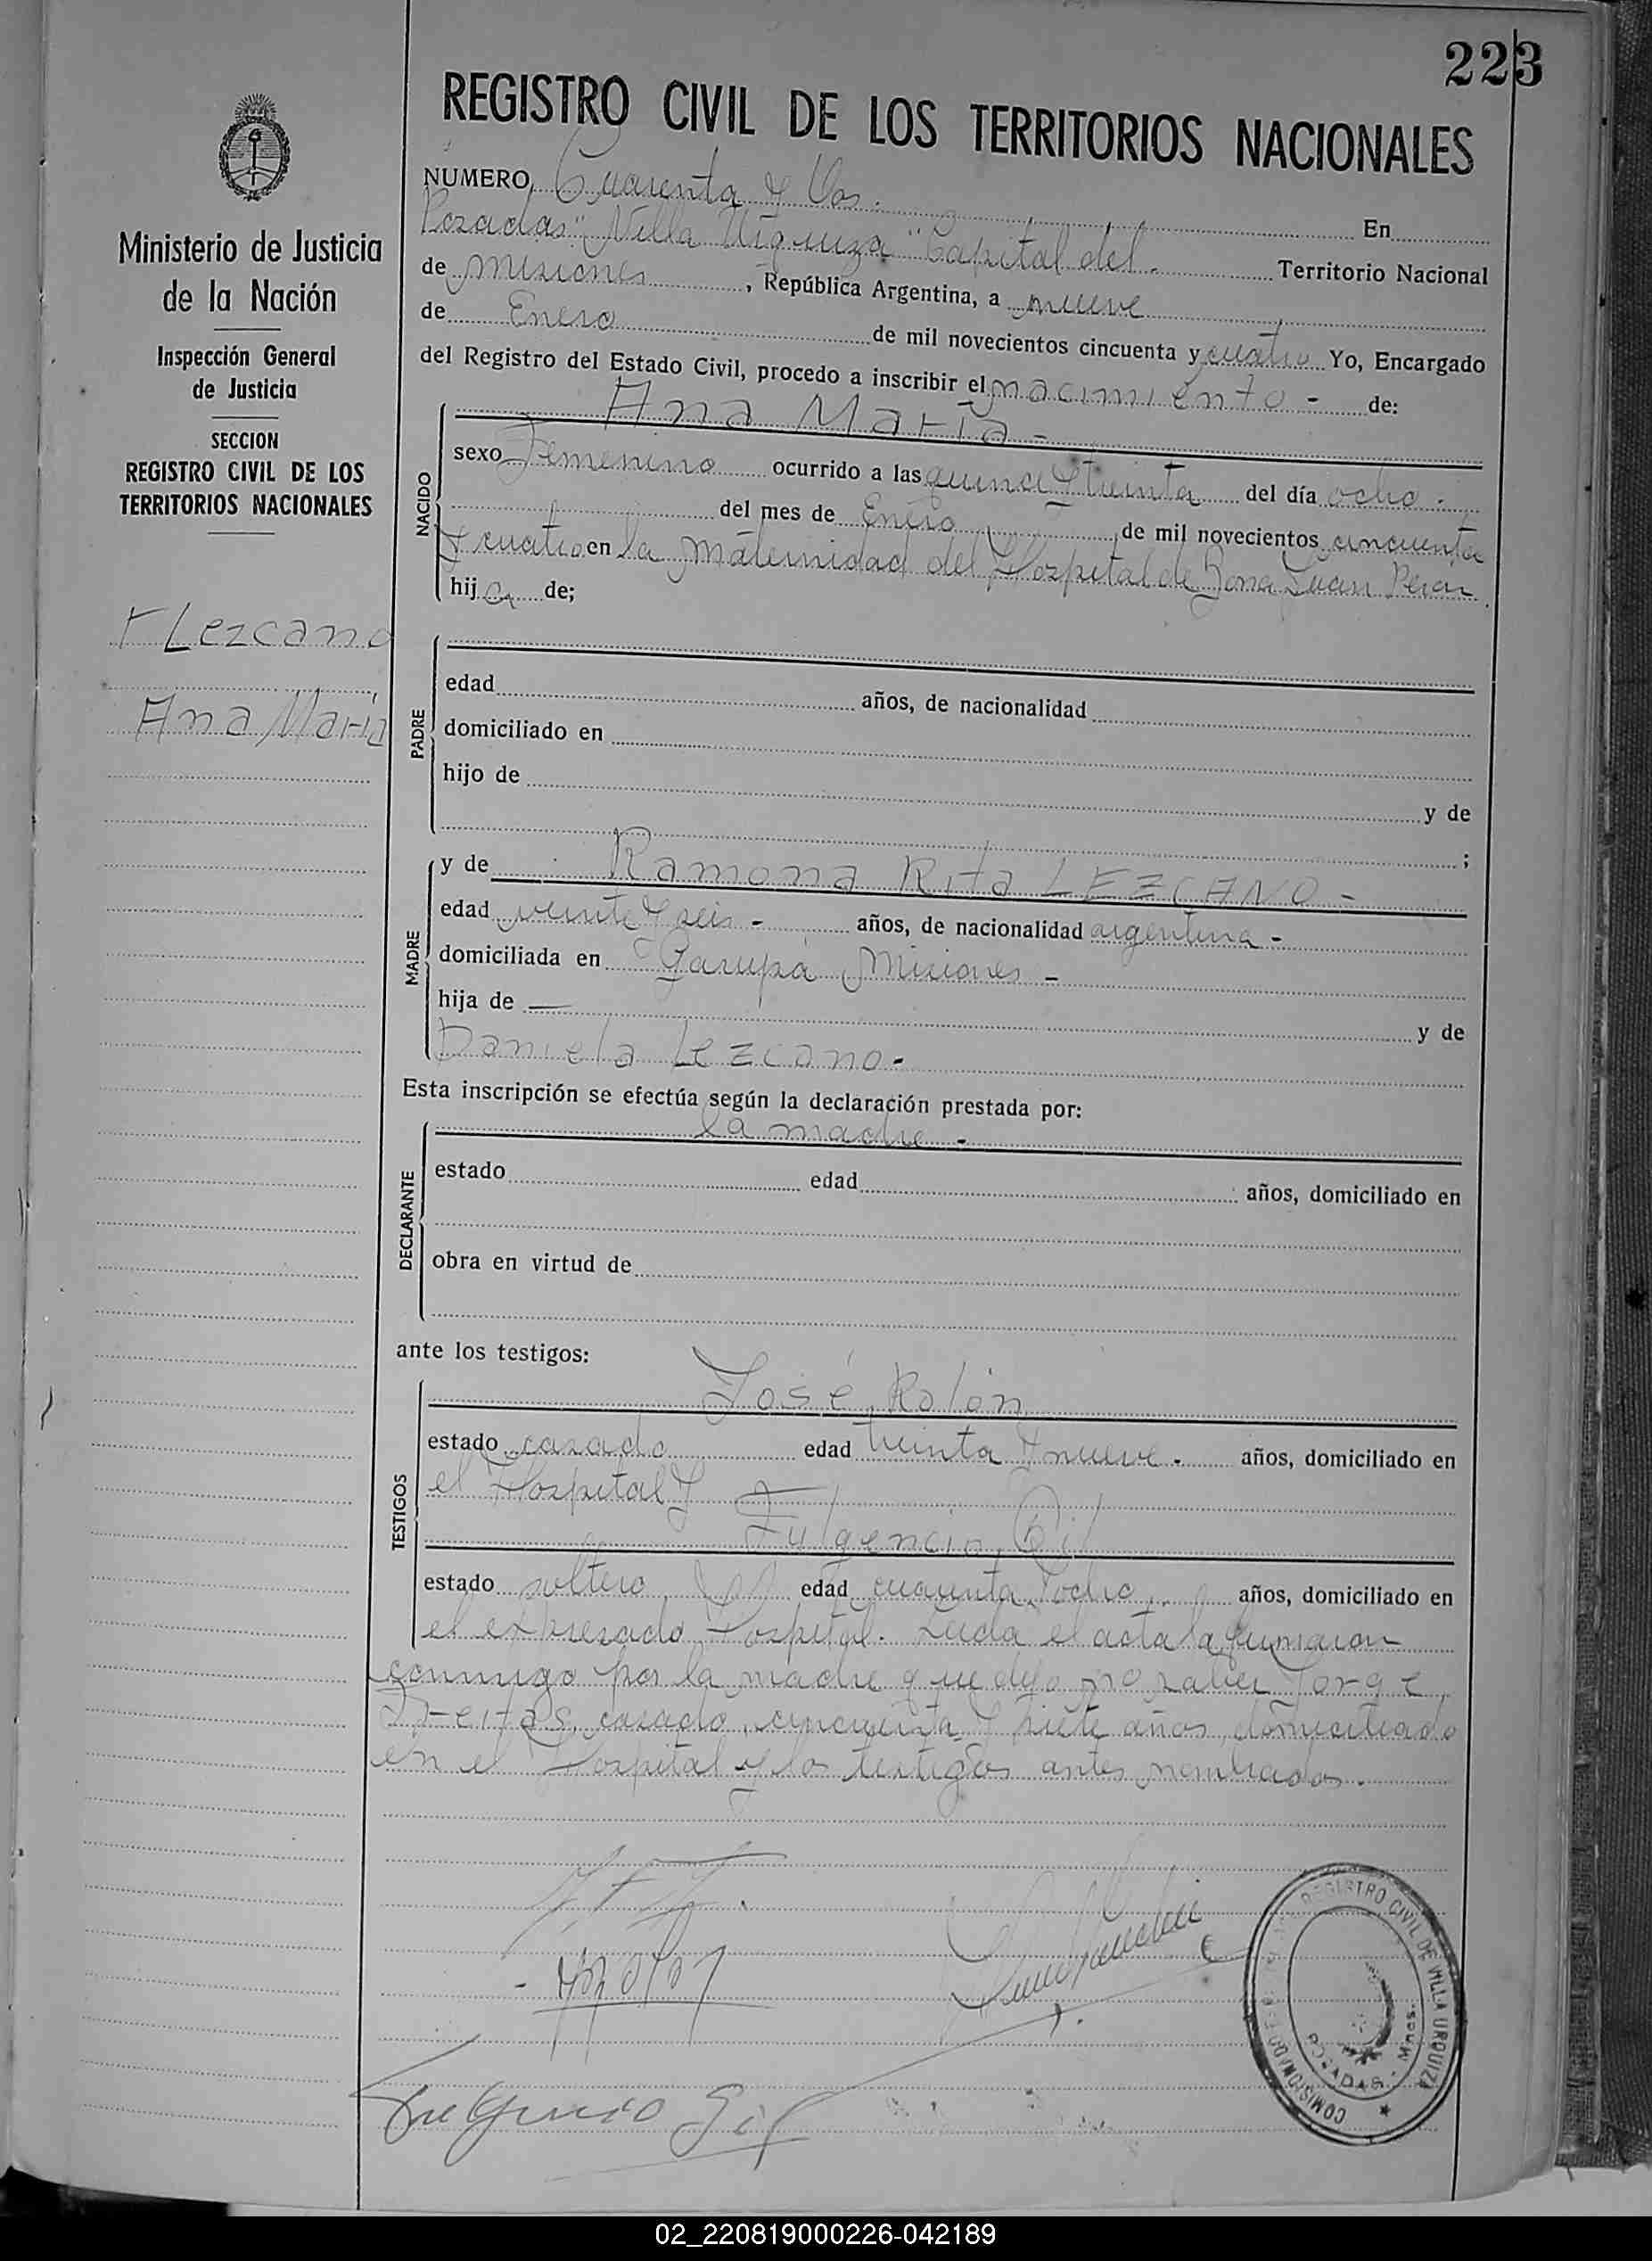 223
REGISTRO CIVIL DE LOS TERRITORIOS NACIONALES
Ministerio de Justicia
de la Nación
Inspección General
de Justicia
SECCION
REGISTRO CIVIL DE LOS
TERRITORIOS NACIONALES
Lezcano
Ana María
NUMERO Cuarenta y Dos. En
Posadas "Villa Urquiza" Capital del Territorio Nacional
de Misiones, República Argentina, a nueve
de Enero de mil novecientos cincuenta y cuatro Yo, Encargado
del Registro del Estado Civil, procedo a inscribir el nacimiento - de:
Ana María -
NACIDO
sexo Femenino ocurrido a las quince y treinta del día ocho -
del mes de Enero de mil novecientos cincuenta
y cuatro en la Maternidad del Hospital de Zona Juan Perón
hija de;
PADRE
edad años, de nacionalidad
domiciliado en
hijo de y de
;
MADRE
y de Ramona Rita LEZCANO -
edad veinte y seis - años, de nacionalidad argentina -
domiciliada en Garupá Misiones -
hija de — y de
Daniela Lezcano -
Esta inscripción se efectúa según la declaración prestada por:
la madre -
DECLARANTE
estado edad años, domiciliado en
obra en virtud de
ante los testigos:
José Rolón
TESTIGOS
estado casado edad treinta y nueve - años, domiciliado en
el Hospital y
Fulgencio Gil
estado soltero edad cuarenta y ocho años, domiciliado en
el expresado Hospital. Leida el acta la firmaron
conmigo por la madre que dijo no saber Jorge
Freitas, casado, cincuenta y siete años, domiciliado
en el Hospital y los testigos antes nombrados.
Fulgencio Gil
REGISTRO CIVIL DE VILLA URQUIZA
POSADAS - Mnes.
02_220819000226-042189